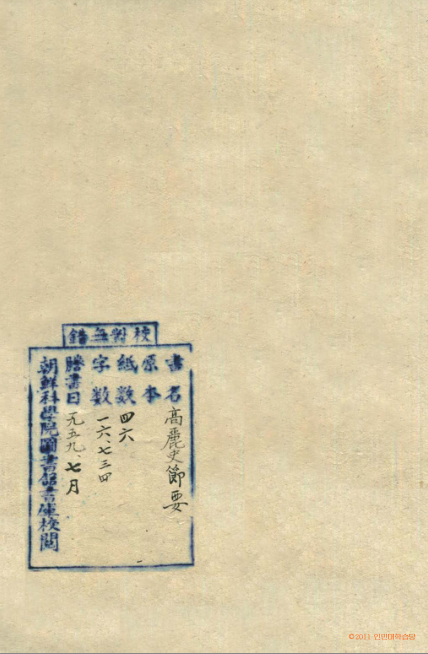 校對無錯
書名 高麗史節要
原本
紙數 四六
字數 一六、七三四
謄書日 一九五九、七月
朝鮮科學院圖書館書庫校閱
©2011 인민대학습당